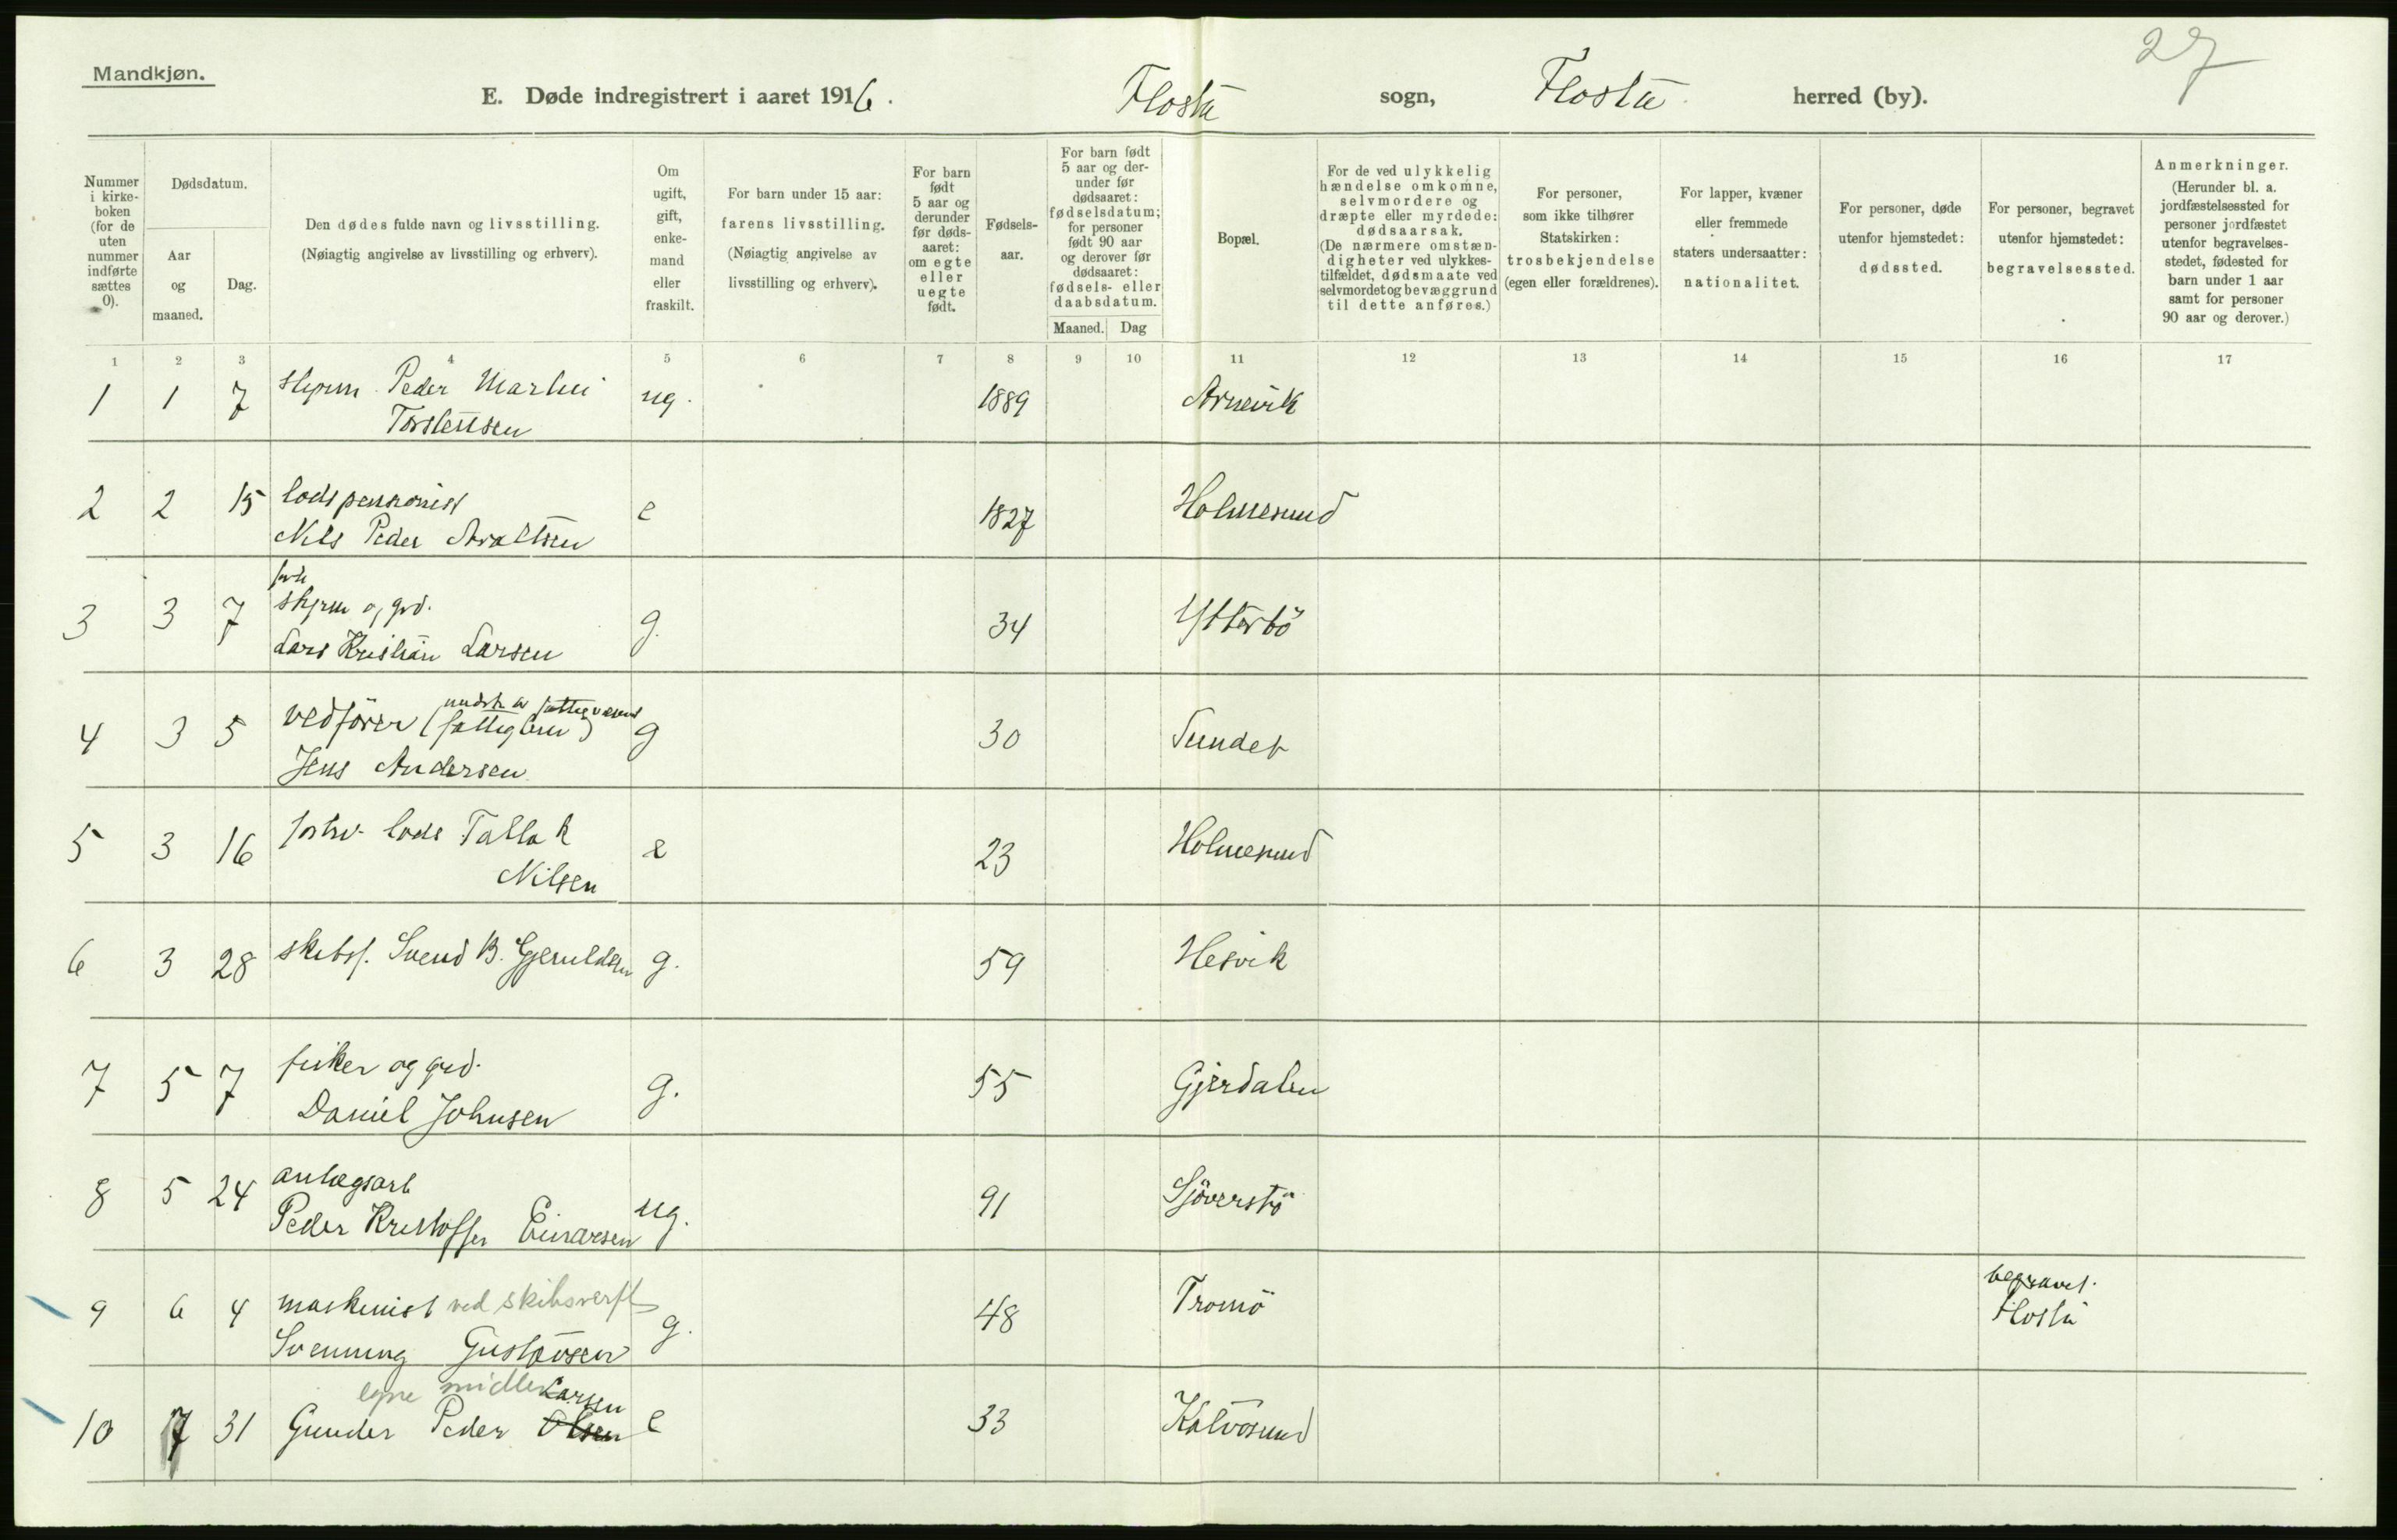 27
Mandkjøn.
E. Døde indregistrert i aaret 1916. Flosta sogn, Flosta herred (by).
Nummer i kirke-boken (for de uten nummer indførte sættes 0).
Dødsdatum.
Aar og maaned.
Dag.
Den dødes fulde navn og livsstilling.
(Nøiagtig angivelse av livsstilling og erhverv).
Om ugift, gift, enke-mand eller fraskilt.
For barn under 15 aar: farens livsstilling.
(Nøiagtig angivelse av livsstilling og erhverv).
For barn født 5 aar og derunder før døds-aaret: om egte eller uegte født.
Fødsels-aar.
For barn født 5 aar og der-under før dødsaaret: fødselsdatum; for personer født 90 aar og derover før dødsaaret: fødsels- eller daabsdatum.
Maaned. Dag
Bopæl.
For de ved ulykkelig hændelse omkomne, selvmordere og dræpte eller myrdede: dødsaarsak.
(De nærmere omstæn-digheter ved ulykkes-tilfældet, dødsmaate ved selvmordet og bevæggrund til dette anføres.)
For personer, som ikke tilhører Statskirken: trosbekjendelse (egen eller forældrenes).
For lapper, kvæner eller fremmede staters undersaatter: nationalitet.
For personer, døde utenfor hjemstedet: dødssted.
For personer, begravet utenfor hjemstedet: begravelsessted.
Anmerkninger.
(Herunder bl. a. jordfæstelsessted for personer jordfæstet utenfor begravelses-stedet, fødested for barn under 1 aar samt for personer 90 aar og derover.)
1 2 3 4 5 6 7 8 9 10 11 12 13 14 15 16 17
1 1 7 styrm. Peder Martin ug. 1889 Arnevik
Torstensen
2 2 15 lodspensionist e 1827 Holmesund
Nils Peder Araltsen
forh
3 3 7 styrm og grd. g. 34 Ytterbö
Lars Kristian Larsen
underst. av fattigvæsenet
4 3 5 vedförer (fattiglem) g 30 Sundet
Jens Andersen
5 3 16 forhv. lods Tallak e 23 Holmesund
Nilsen
6 3 28 skibsf. Svend B. Gjeruldsen g. 59 Hesvik
7 5 7 fisker og grd. g. 55 Gjerdalen
Daniel Johnsen
8 5 24 anlægsarb ug. 91 Sjöverstö
Peder Kristoffer Einarsen
9 6 4 maskinist ved skibsverft g. 48 Tromö begravet. Flosta
Svenning Gustavsen
egne midler Larsen
10 7 31 Gunder Peder Olsen e 33 Kalvøsund